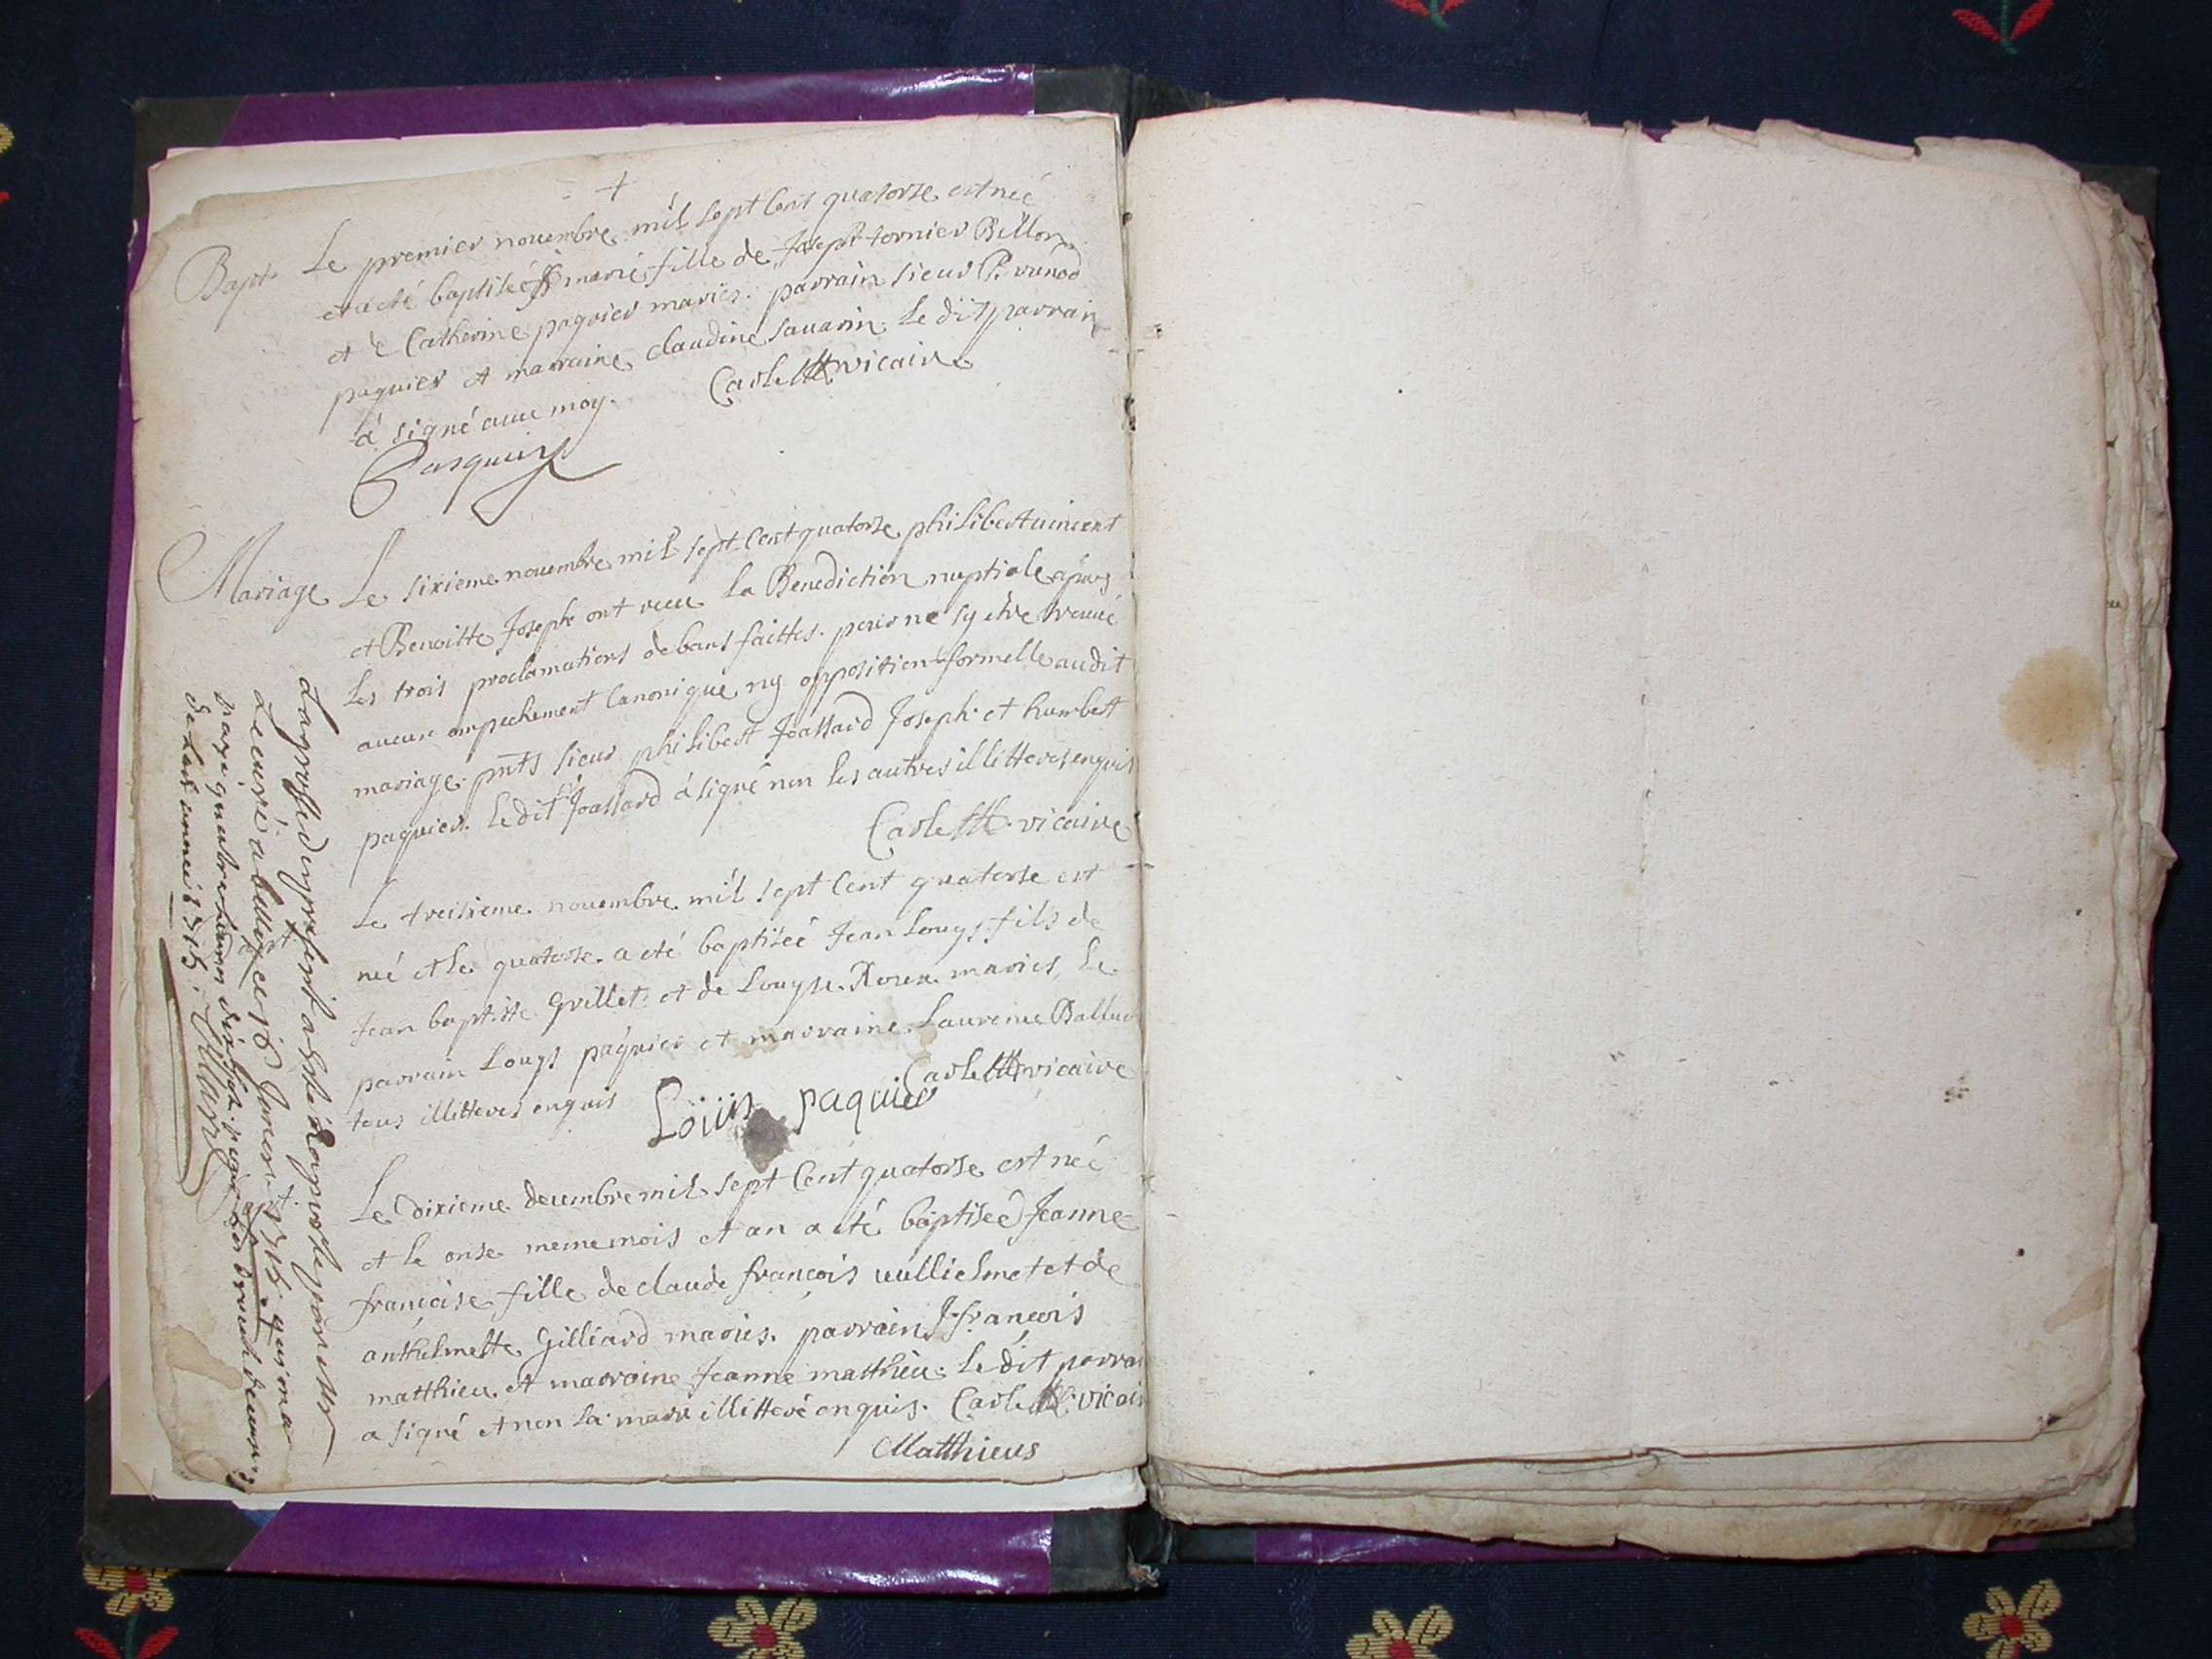 +
Bapt. Le premier nouembre mil sept Cent quatorse est née
et a eté baptiseé marie fille de Joseph tornier Billon
et Catherine paquier mariés. parrain sieur P.
paquier et marraine claudine sauarin. Le dit parrain
à signé auec moy. Carlet vicaire
Pasquier
Mariage Le sixieme nouembre mil sept Cent quatorse philibert uincent
et Benoitte Joseph ont receu la Benediction nuptiale apres
les trois proclamations de bans faittes. personne sy etre trouué
aucun empechement Canonique ny opposition formelle audit
mariage. pnts sieur philibert Joassard Joseph et humbert
paquier. Le dit sr Joassard à signé non les autres illitteres enquis
Carlet vicaire
Le treisieme nouembre mil sept Cent quatorse est
Bapt. né et le quatorse a eté baptiseé Jean Louys fils de
Jean baptiste Grillet et de Louyse Roux mariés, le
parrain Louys paquier et marraine Laurence
tous illitteres enquis Carlet vicaire
Loüis paquier
Le dixieme decembre mil sept Cent quatorse est née
Bapt. et le onse meme mois et an a eté baptiseé Jeanne
françoise fille de claude françois uullielmet et de
anthelmette Gilliard mariés. parrain J. françois
matthieu et marraine Jeanne matthieu. Le dit parrai
a signé et non la marr illitteré enquis. Carlet vicair
Matthieus
La grosse du present a esté par
Le curé a Belley ce 18 Januier 1715
de lad. année 1715.